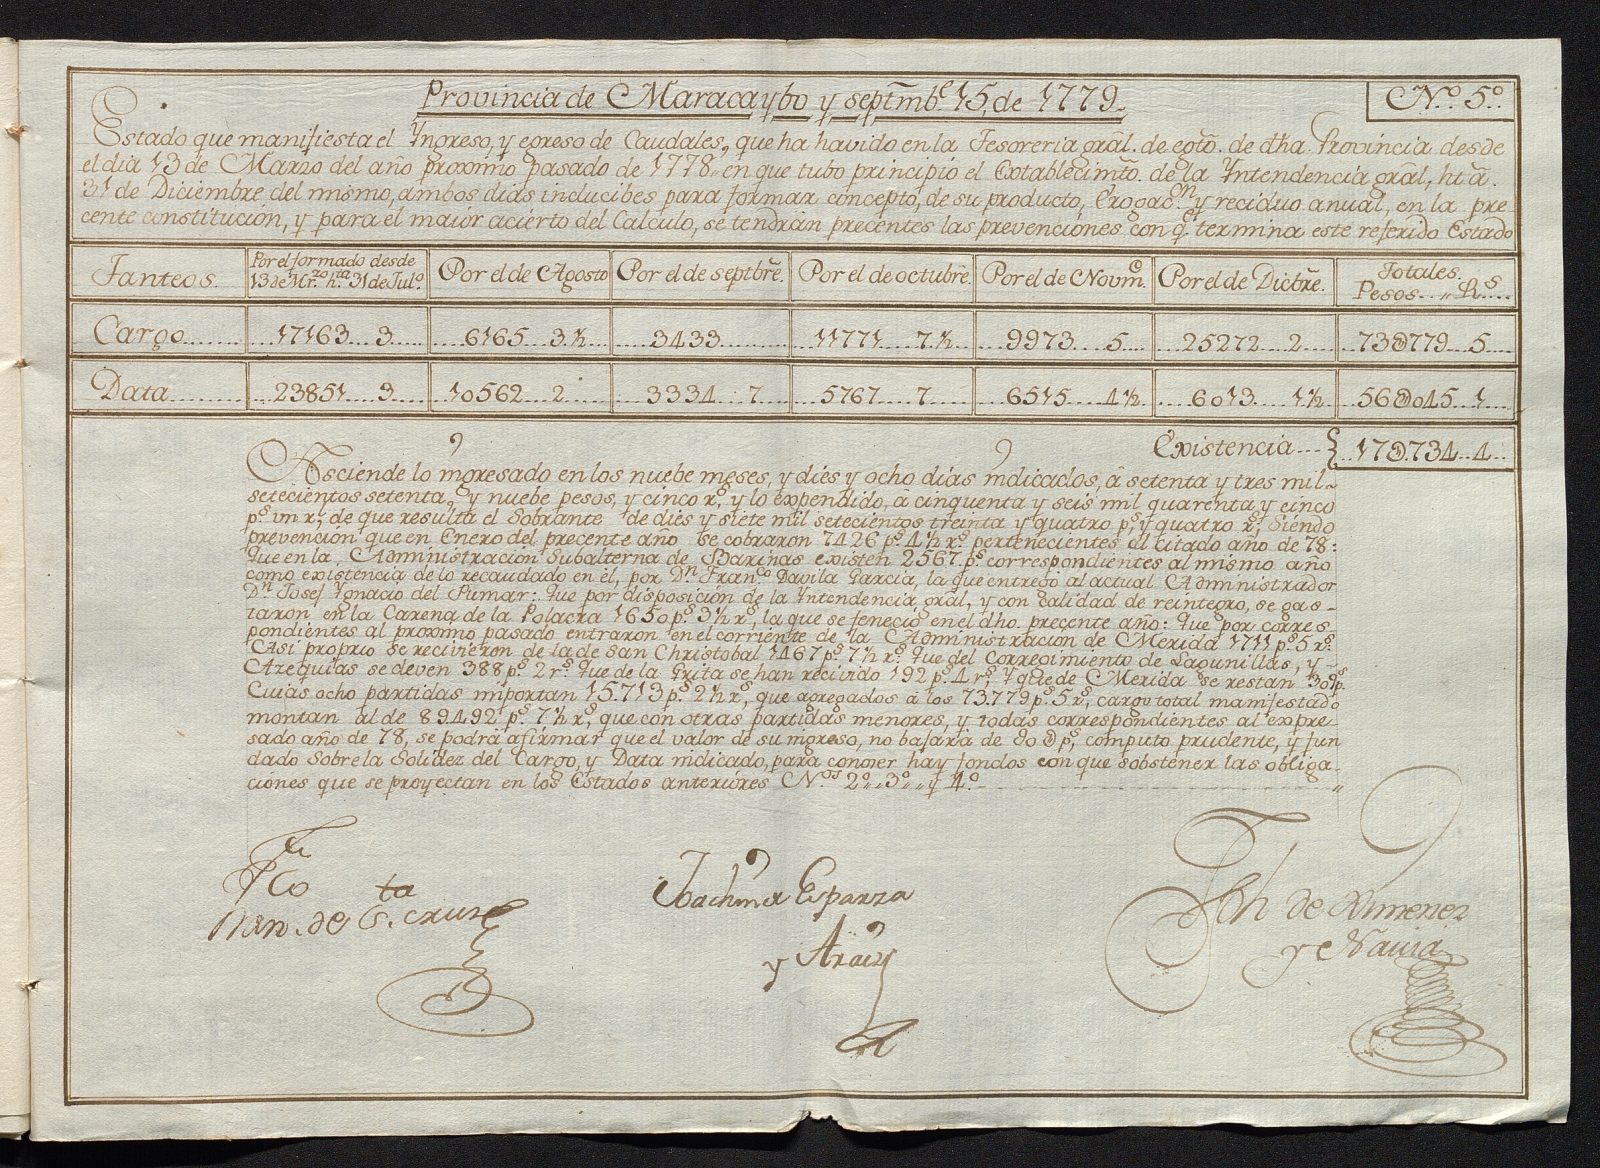 Provincia de Maracaybo y septmbe 15, de 1779.
No. 5o
Estado que manifiesta el Yngreso, y egreso de Caudales, que ha havido en la Tesoreria gral. de egto. de dha Provincia desde
el dia 13 de Marzo del año proximo pasado de 1778,, en que tubo principio el Extablecimto. de la Yntendencia gral, hta.
31 de Diciembre del mismo, ambos dias inclucibes para formar concepto, de su producto, Erogacon. y reciduo anual, en la pre
cente constitucion, y para el maior acierto del Calculo, se tendran precentes las prevenciones con q. termina este referido Estado
Tanteos. Por el formado desde 13 de Mrzo. hta. 31 de Julo. Por el de Agosto Por el de septbre. Por el de octubre. Por el de Novme. Por el de Dictre. Totales. Pesos..,, Rs...
Cargo...... 17163...3.... 6165...3½ 3433 11771...7½ 9973...5.... 25272...2.... 73Ø779...5...
Data........ 23851...3... 10562...2... 3334...7 5767...7 6515...4½ 6013...1½ 56Ø045...1...
Existencia...{ 17Ø.734...4...
Asciende lo ingresado en los nuebe meses, y dies y ocho dias indicados, â setenta y tres mil
setecientos setenta, y nuebe pesos, y cinco rs. y lo expendido, a cinquenta y seis mil quarenta y cinco
ps. un r.; de que resulta el Sobrante de dies y siete mil setecientos treinta y quatro ps. y quatro rs. Siendo
prevencion que en Enero del precente año Se cobraron 7426 ps. 4½ rs. pertenecientes al citado año de 78:
Que en la Administracion Subalterna de Barinas existen 2567. ps. correspondientes al mismo año
como existencia de lo recaudado en èl, por Dn. Franco. Davila Garcia, la que entregó al actual Administrador
Dn. Josef Ygnacio del Pumar: Que por disposicion de la Yntendencia gral, y con calidad de reintegro, se gas-
taron en la Carena de la Polacra 1650 ps. 3½ rs., la que se feneció en el dho. precente año: Que por corres
pondientes al proximo pasado entraron en el corriente de la Administracion de Merida 1711 ps. 5 rs.
Asi proprio Se recivieron de la de San Christobal 1467 ps. 7½ rs. Que del Corregimiento de Lagunillas, y
Azequias se deven 388 ps. 2 rs. Que de la Grita se han recivido 192 ps. 4 rs. Y que de Merida se restan 309 ps.
Cuias ocho partidas importan 15.713 ps. 2½ rs., que agregados á los 73.779 ps. 5 rs, cargo total manifestado
montan al de 89492 ps. 7½ rs, que con otras partidas menores, y todas correspondientes al expre-
sado año de 78, se podrá afirmar que el valor de su ingreso, no bajará de 90Ø ps, computo prudente, y fun
dado Sobre la Solidez del Cargo, y Data indicado, para conoser hay fondos con que sobstener las obliga-
ciones que se proyectan en los Estados anteriores Nos. 2o,, 3o,, y 4o.
Fco
Nan. de Sta. cruz
Joachin Esparza
y
Jph de Ximenez
y Navia